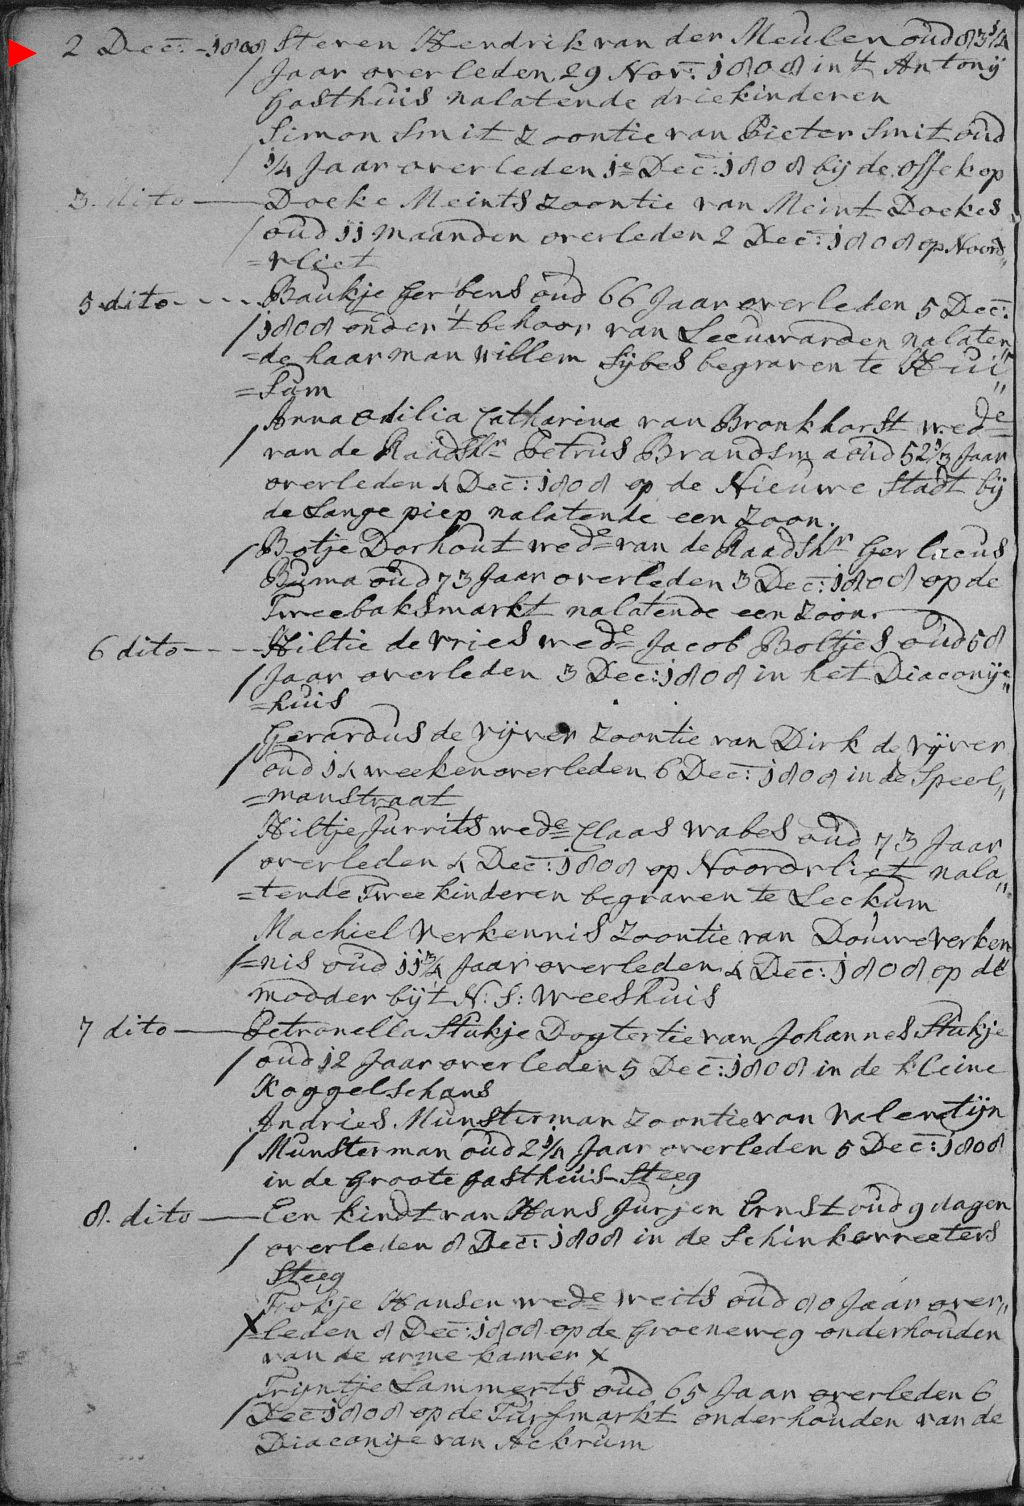 2 Dec: 1808 Steven Hendrik van der Meulen oud 83 1/4
Jaar overleden 29 Nov: 1808 in 't Antonij
Gasthuis nalatende drie kinderen
Simon Smit zoontie van Pieter Smit oud
1/4 Jaar overleden 1e Dec: 1808 bij de
3. dito — Doeke Meints zoontie van Meint Doekes
oud 11 maanden overleden 2 Dec: 1808 op Noord„
=vliet
5 dito - - - Baukje Gerbens oud 66 Jaar overleden 5 Dec:
1808 onder 't behoor van Leeuwarden nalaten„
=de haar man Willem Sijbes begraven te Hui„
=Sum
Anna Odilia Catharina van Bronkhorst wede
van de Raadshr Petrus Brandsma oud 52 1/3 Jaar
overleden 4 Dec: 1808 op de Nieuwe Stadt bij
de Lange piep nalatende een Zoon.
Botje Dorhout wede van de Raadshr Gerlacus
Buma oud 73 Jaar overleden 3 Dec: 1808 op de
Tweebaksmarkt nalatende een zoon.
6 dito - - - Hiltie de Vries wede Jacob Boltjes oud 58
Jaar overleden 3 Dec: 1808 in het Diaconije„
=huis
Gerardus de Vijver zoontie van Dirk de Vijver
oud 14 weeken overleden 6 Dec: 1808 in de Speel„
=manstraat
Hiltje Jurrits wede Claas Wabes oud 73 Jaar
overleden 4 Dec: 1808 op Noordvliet nala„
=tende Twee kinderen begraven te Leckum
Machiel Verkennis zoontie van Douwe Verken
=nis oud 11 3/4 Jaar overleden 4 Dec: 1808 op de
modder bij 't N: S: Weeshuis
7 dito — Petronella Stukje Dogtertie van Johannes Stukje
oud 12 Jaar overleden 5 Dec: 1808 in de kleine
Koggelschans
Andries Munsterman zoontie van Valentijn
Munsterman oud 2 1/4 Jaar overleden 5 Dec: 1808
in de Groote Gasthuis Steeg
8. dito — Een kindt van Hans Jurjen Ernst oud 9 dagen
overleden 8 Dec: 1808 in de Schinkevreeters
Steeg
Frokje Hansen wede Weits oud 80 Jaar over„
X =leden 8 Dec: 1808 op de Groeneweg onderhouden
van de arme kamer x
Trijntje Lammerts oud 65 Jaar overleden 6
Dec 1808 op de Turfmarkt onderhouden van de
Diaconije van Ackrum